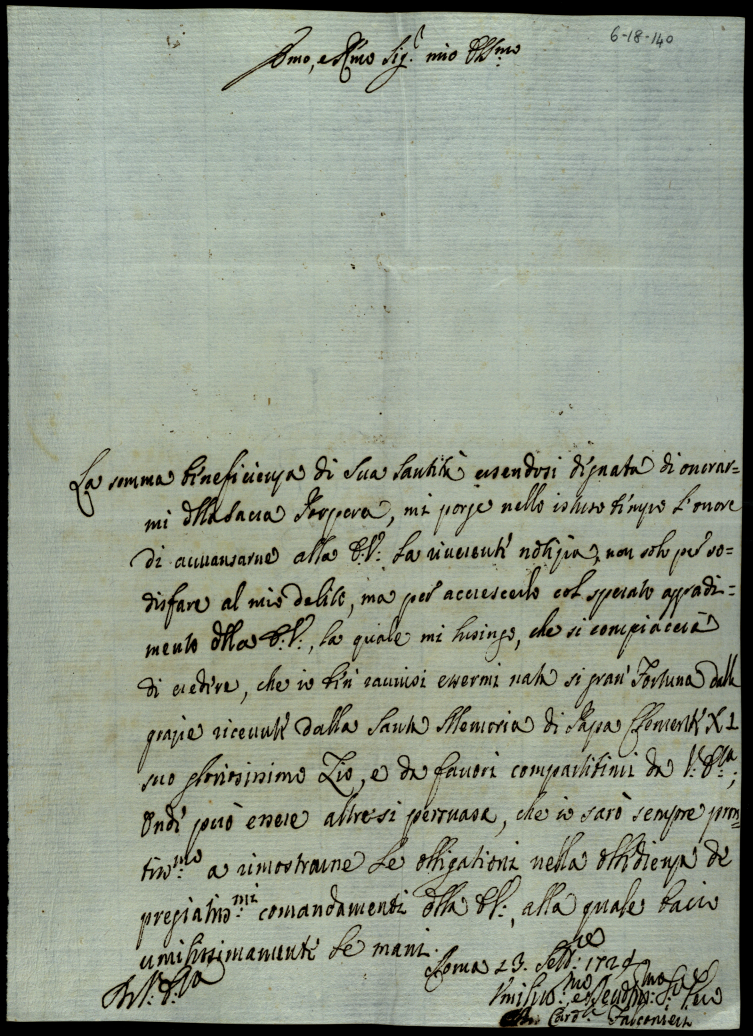 6-18-140
Emo, e Rmo Sig.r mio Ossmo
La somma beneficienza di Sua Santità essendosi dignata di onorar=
mi della Sacra Porpora, mi porge nello istesso tempo l'onore
di auuansarne alla E.V. la riuerente notizia, non solo per so=
disfare al mio debito, ma per accrescerlo col sperato aggradi=
mento della E.V., la quale mi lusingo, che si compiacerà
di credere, che io ben rauuisi essermi nata si gran Fortuna dalle
grazie riceuute dalla Santa Memoria di Papa Clemente XI
suo gloriosissimo Zio, e da fauori compartitimi da V. Eza;
Onde può essere altresi persuasa, che io sarò sempre pron=
tissmo a rimostrarne le obligationi nella obbidienza de
pregiatissmi comandamenti della E.V., alla quale bacio
umilissimamente le mani.
Roma 23. Settbre 172
Di V. Eza
Umilissmo, e Deuotissmo
Card. Falconieri